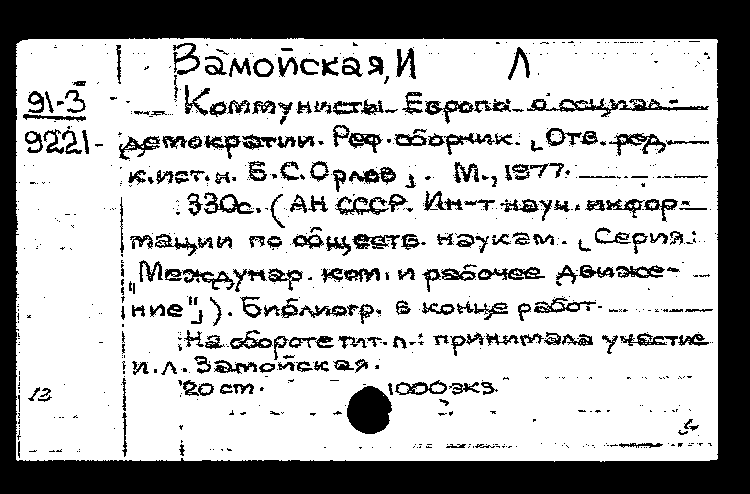 Замойская, И Л
91-3 Коммунисты Европы о социал-
9221- демократии. Реф. сборник. [Отв. ред.
к.ист.н. Б.С. Орлов]. М., 1977.
330с. (АН СССР. Ин-т науч. инфор-
мации по обществ. наукам. [Серия:
"Междунар. ком. и рабочее движе-
ние"]). Библиогр. в конце работ.
На обороте тит. л.: принимала участие
И.Л. Замойская.
20 ст. 1000 экз.